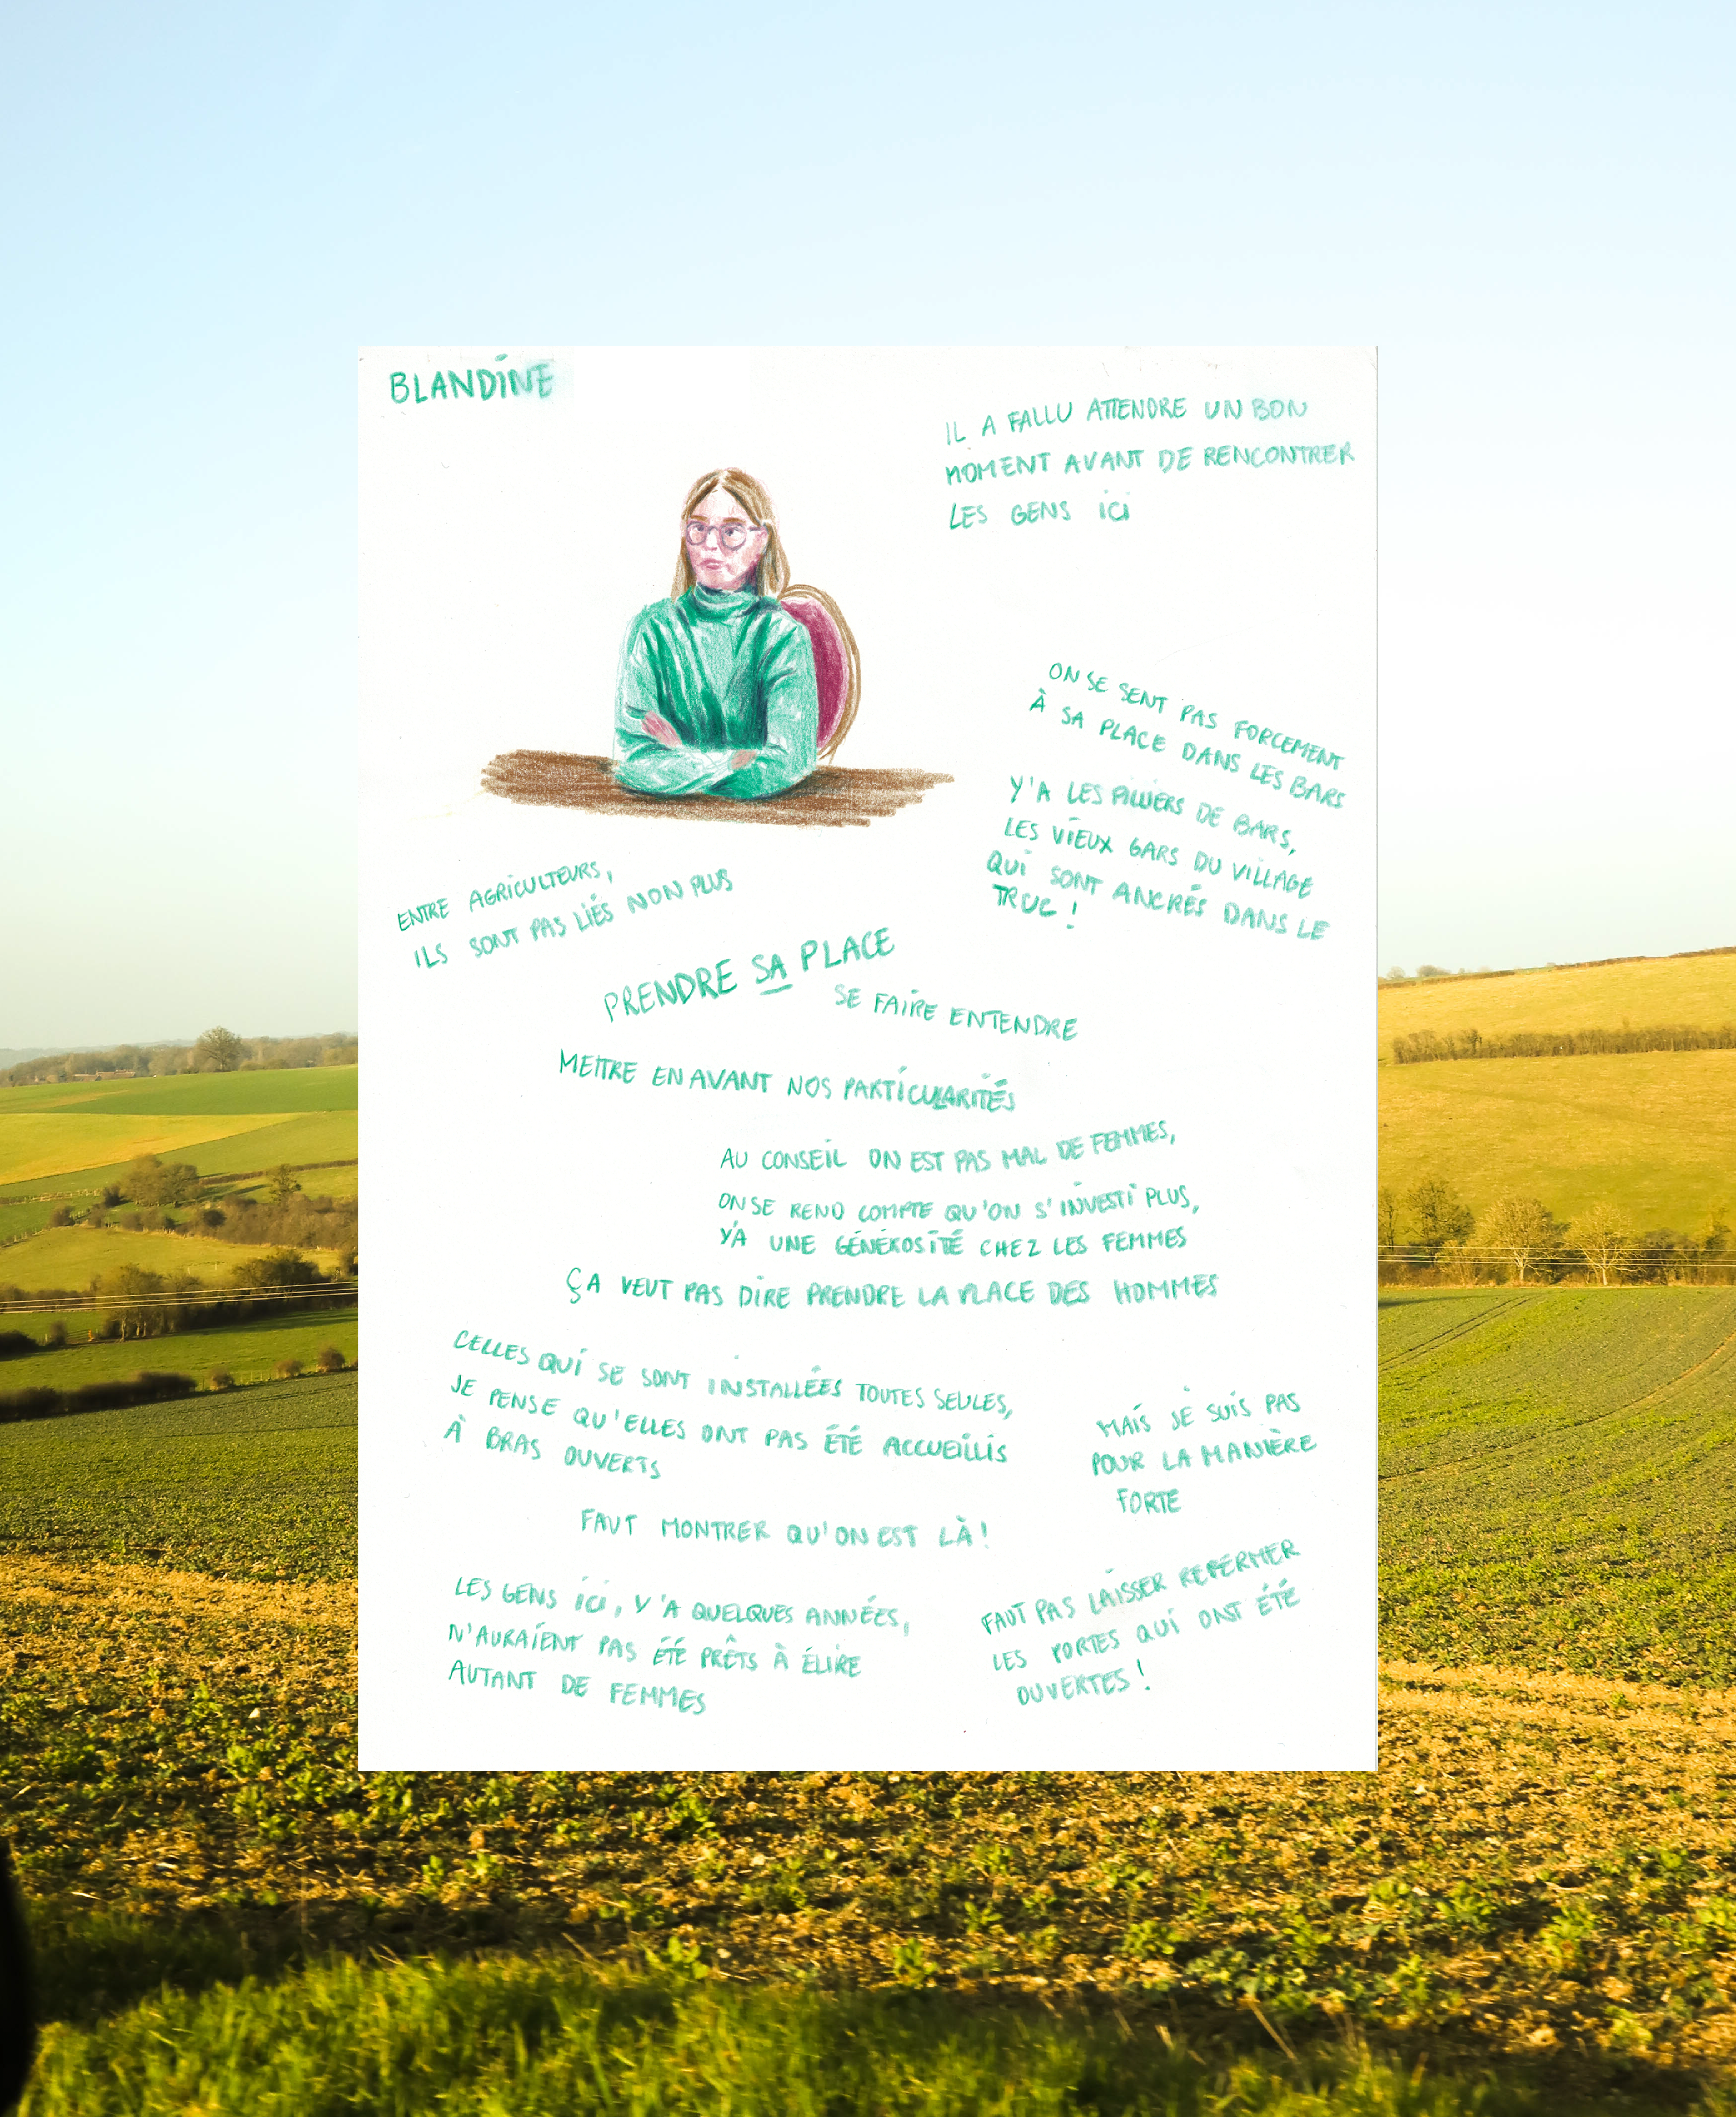 BLANDINE
IL A FALLU ATTENDRE UN BON
MOMENT AVANT DE RENCONTRER
LES GENS ici
ON SE SENT PAS FORCEMENT
À SA PLACE DANS LES BARS
Y'A LES PILLIERS DE BARS,
LES VIEUX GARS DU VILLAGE
QUI SONT ANCRÉS DANS LE
TRUC !
ENTRE AGRICULTEURS,
ILS SONT PAS LIÉS NON PLUS
PRENDRE SA PLACE
SE FAIRE ENTENDRE
METTRE EN AVANT NOS PARTICULARITÉS
AU CONSEIL ON EST PAS MAL DE FEMMES,
ON SE REND COMPTE QU'ON S'INVESTI PLUS,
Y'A UNE GÉNÉROSITÉ CHEZ LES FEMMES
ÇA VEUT PAS DIRE PRENDRE LA PLACE DES HOMMES
CELLES QUI SE SONT INSTALLÉES TOUTES SEULES,
JE PENSE QU'ELLES ONT PAS ÉTÉ ACCUEILLIS
À BRAS OUVERTS
MAIS JE SUIS PAS
POUR LA MANIÈRE
FORTE
FAUT MONTRER QU'ON EST LÀ !
LES GENS ici, Y'A QUELQUES ANNÉES,
N'AURAIENT PAS ÉTÉ PRÊTS À ÉLIRE
AUTANT DE FEMMES
FAUT PAS LAISSER REFERMER
LES PORTES QUI ONT ÉTÉ
OUVERTES !